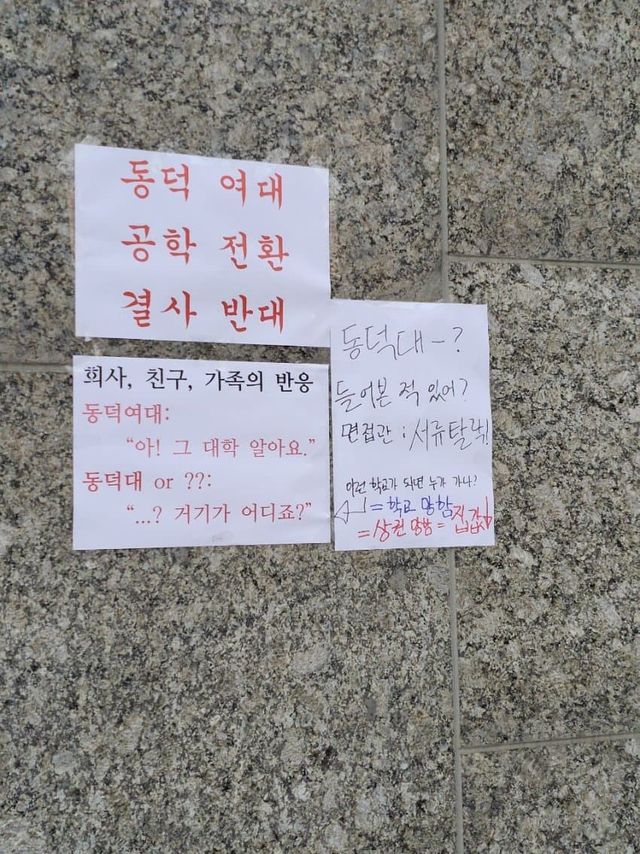 동덕 여대
공학 전환
결사 반대
회사, 친구, 가족의 반응
동덕여대:
"아! 그 대학 알아요."
동덕대 or ??:
"...? 거기가 어디죠?"
동덕대 - ?
들어본 적 있어?
면접관 : 서류탈락!
이런 학교가 되면 누가 가나?
= 학교 망함
= 상권 망함 = 집값↓